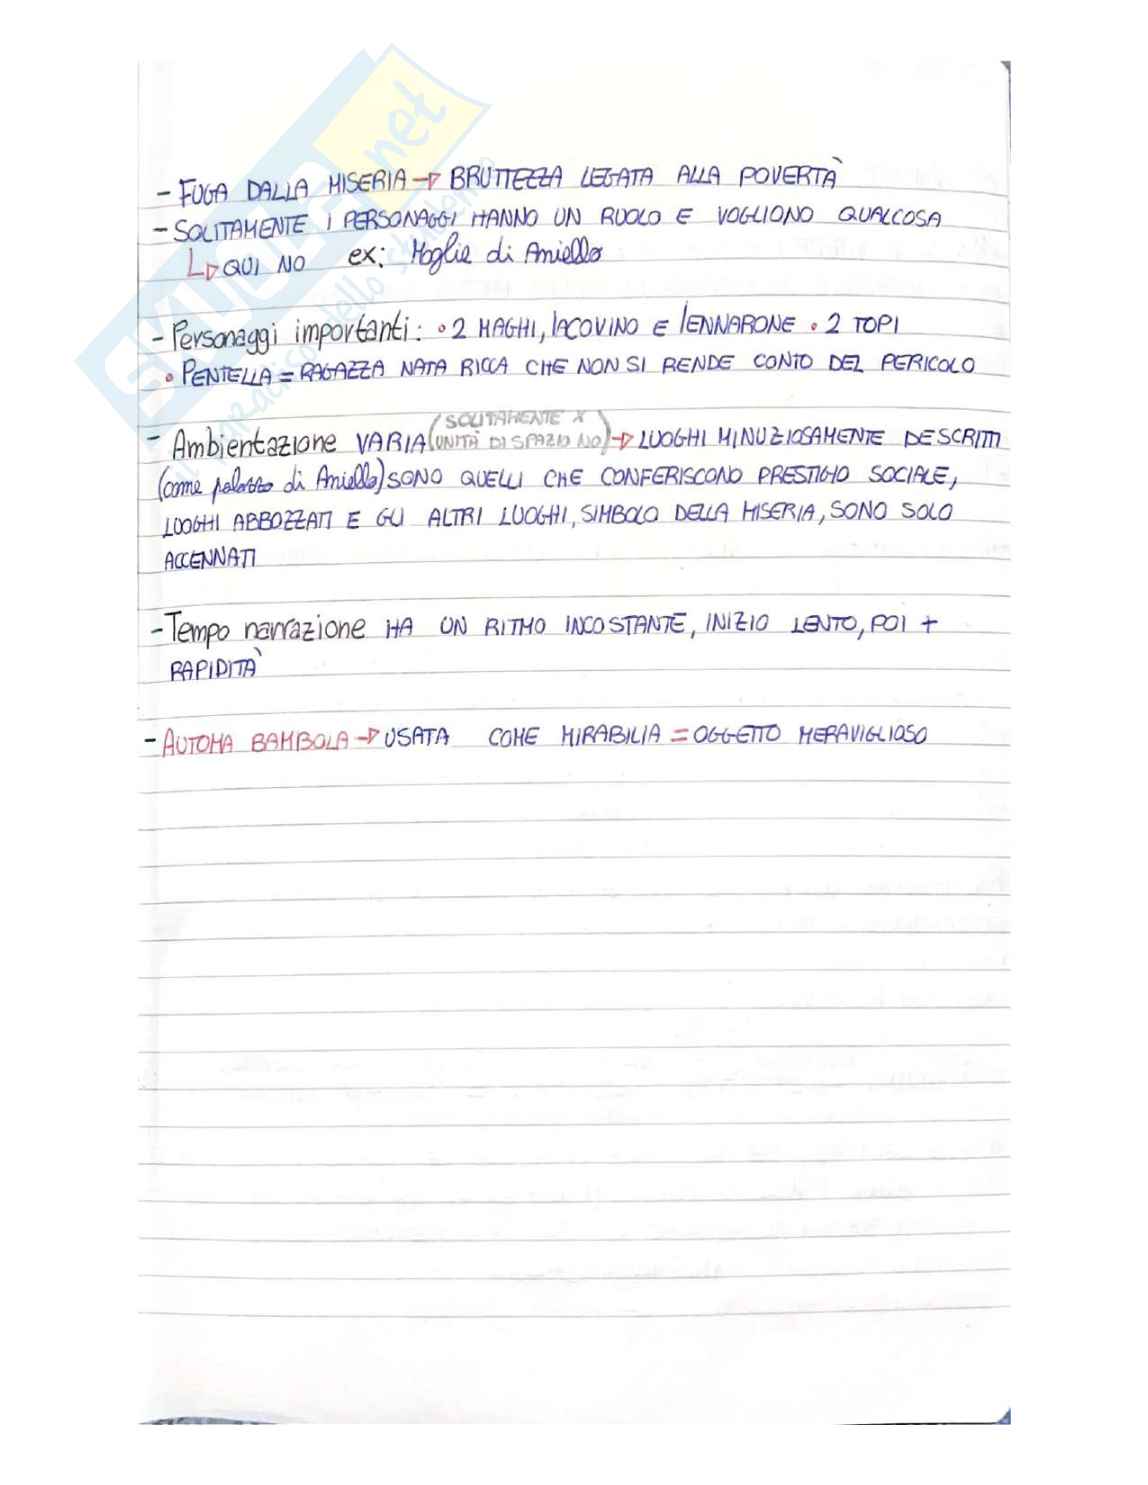 - FUGA DALLA MISERIA → BRUTTEZZA LEGATA ALLA POVERTÀ
- SOLITAMENTE I PERSONAGGI HANNO UN RUOLO E VOGLIONO QUALCOSA
↳ QUI NO ex: Moglie di Aniello
- Personaggi importanti: • 2 MAGHI, IACOVINO E IENNARONE • 2 TOPI
• PENTELLA = RAGAZZA NATA RICCA CHE NON SI RENDE CONTO DEL PERICOLO
(SOLITAMENTE X
- Ambientazione VARIA UNITÀ DI SPAZIO NO) → LUOGHI MINUZIOSAMENTE DESCRITTI
(come palazzo di Aniello) SONO QUELLI CHE CONFERISCONO PRESTIGIO SOCIALE,
LUOGHI ABBOZZATI E GLI ALTRI LUOGHI, SIMBOLO DELLA MISERIA, SONO SOLO
ACCENNATI
- Tempo narrazione HA UN RITMO INCOSTANTE, INIZIO LENTO, POI +
RAPIDITÀ
- AUTOMA BAMBOLA → USATA COME MIRABILIA = OGGETTO MERAVIGLIOSO
SKUOLA.net
il paradiso dello studente